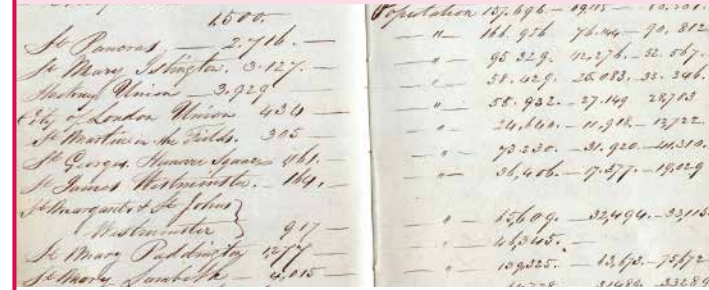 1,500.—
St Pancras, — 2.716. —
St Mary Islington. 3.127. —
Hackney Union — 3.929 —
City of London Union 434 —
St Martins in the Fields. 305 —
St Georges Hanover Square 461. —
St James Westminster. — 164. —
St Margarets & St Johns
Westminster } 917 —
St Mary Paddington 1,277 —
St Mary, Lambeth — 4,015 —
Population 157.696. —
— " — 166.956 76.144 — 90.812
— " — 95.329. 42.276. — 52.567.
— " — 58.429. 25.083. 33.346.
— " — 55.932. — 27.149 28,783
— " — 24,640. — 11,918. — 12,722.
— " — 73.230. — 31.920 — 41.310.
— " — 36,406. — 17.377. — 19.029
— " — 65,609. — 32,494. — 33,115.
— " — 46,345. —
— " — 139325. — 63,673. — 75,672
31489. — 33289